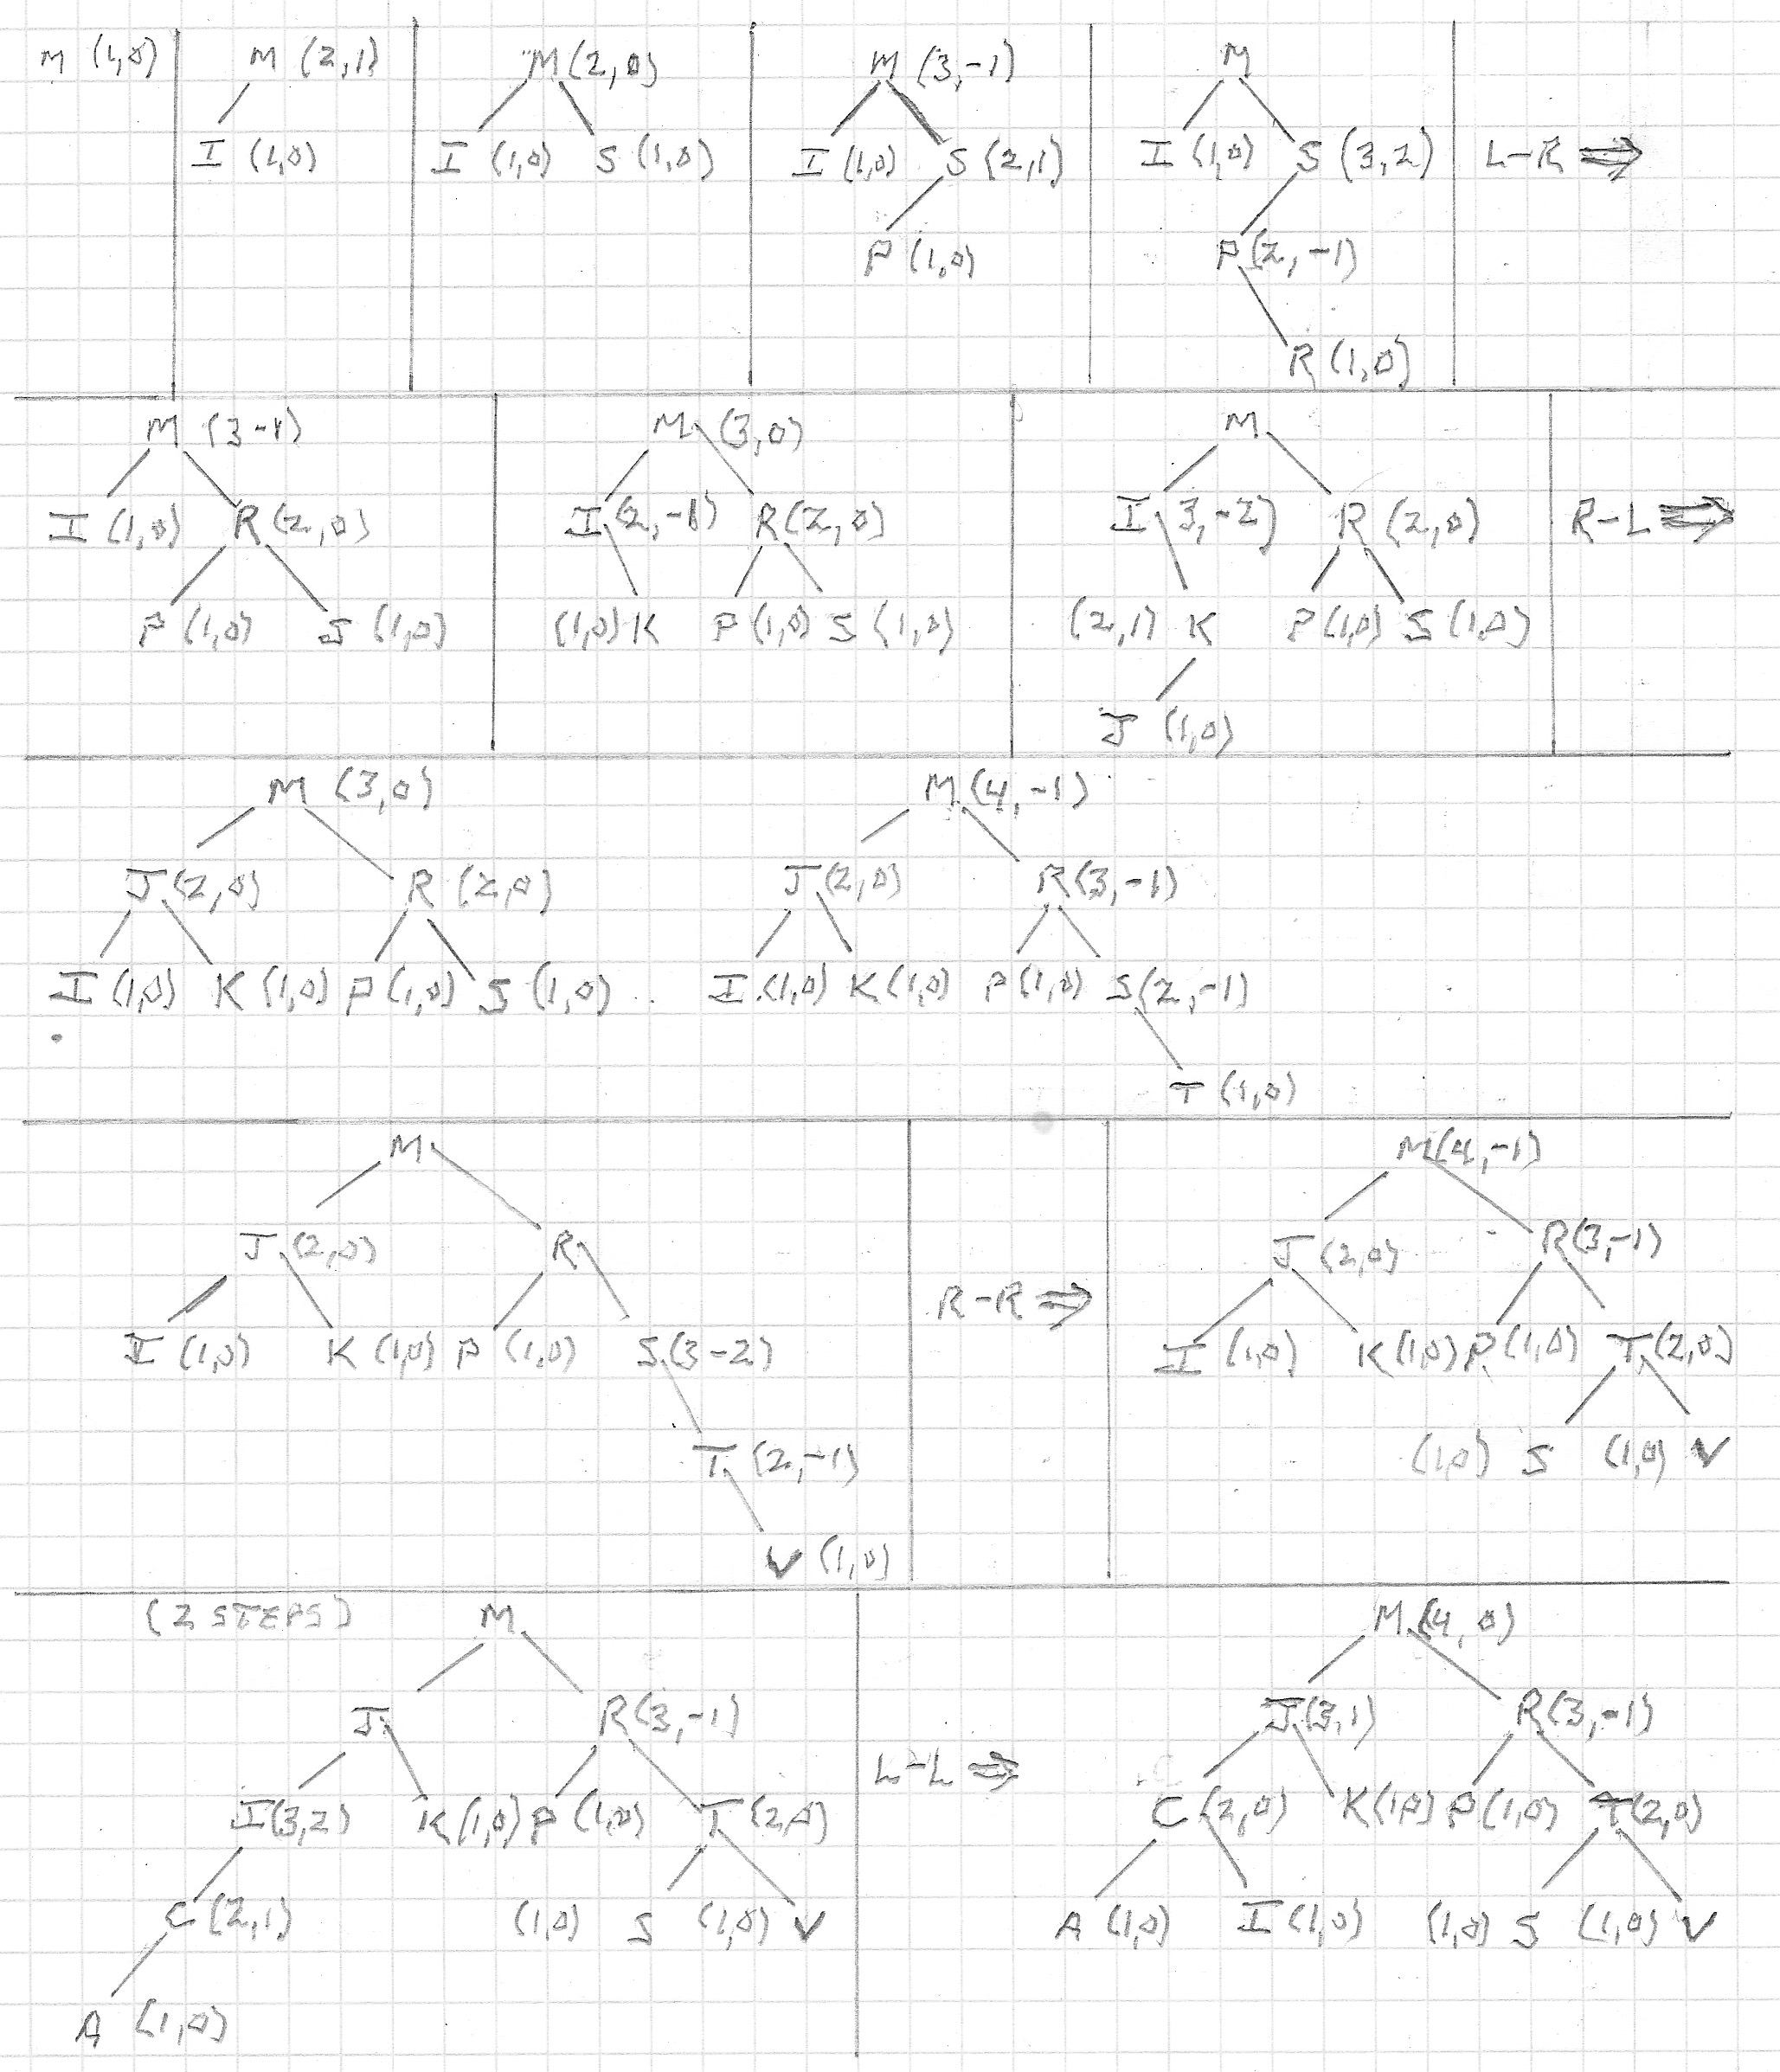 M (1,0)
M (2,1)
I (1,0)
M (2,0)
I (1,0) S (1,0)
M (3,-1)
I (1,0) S (2,1)
P (1,0)
M
I (1,0) S (3,2)
P (2,-1)
R (1,0)
L-R ⇒
M (3-1)
I (1,0) R (2,0)
P (1,0) S (1,0)
M (3,0)
I (2,-1) R (2,0)
(1,0) K P (1,0) S (1,0)
M
I 3,-2) R (2,0)
(2,1) K P (1,0) S (1,0)
J (1,0)
R-L ⇒
M (3,0)
J (2,0) R (2,0)
I (1,0) K (1,0) P (1,0) S (1,0)
M (4,-1)
J (2,0) R (3,-1)
I (1,0) K (1,0) P (1,0) S (2,-1)
T (1,0)
M
J (2,0) R
I (1,0) K (1,0) P (1,0) S (3-2)
T (2,-1)
V (1,0)
R-R ⇒
M (4,-1)
J (2,0) R (3,-1)
I (1,0) K (1,0) P (1,0) T (2,0)
(1,0) S (1,0) V
(2 STEPS)
M
J R (3,-1)
I (3,2) K (1,0) P (1,0) T (2,0)
C (2,1) (1,0) S (1,0) V
A (1,0)
L-L ⇒
M (4,0)
J (3,1) R (3,-1)
C (2,0) K (1,0) P (1,0) T (2,0)
A (1,0) I (1,0) (1,0) S (1,0) V